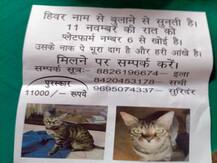 हिवर नाम से बुलाने से सुनती है।
11 नवम्बर की रात को
प्लेटफार्म नम्बर 6 से खोई है।
उसके नाक पे भूरा दाग है और हरी आंखे है।
मिलने पर सम्पर्क करें।
सम्पर्क सूत्र:- 8826196674- इला
8420453178- सधी
पुरस्कार 9695074337- सुरिंदर
11000 /- रूपये